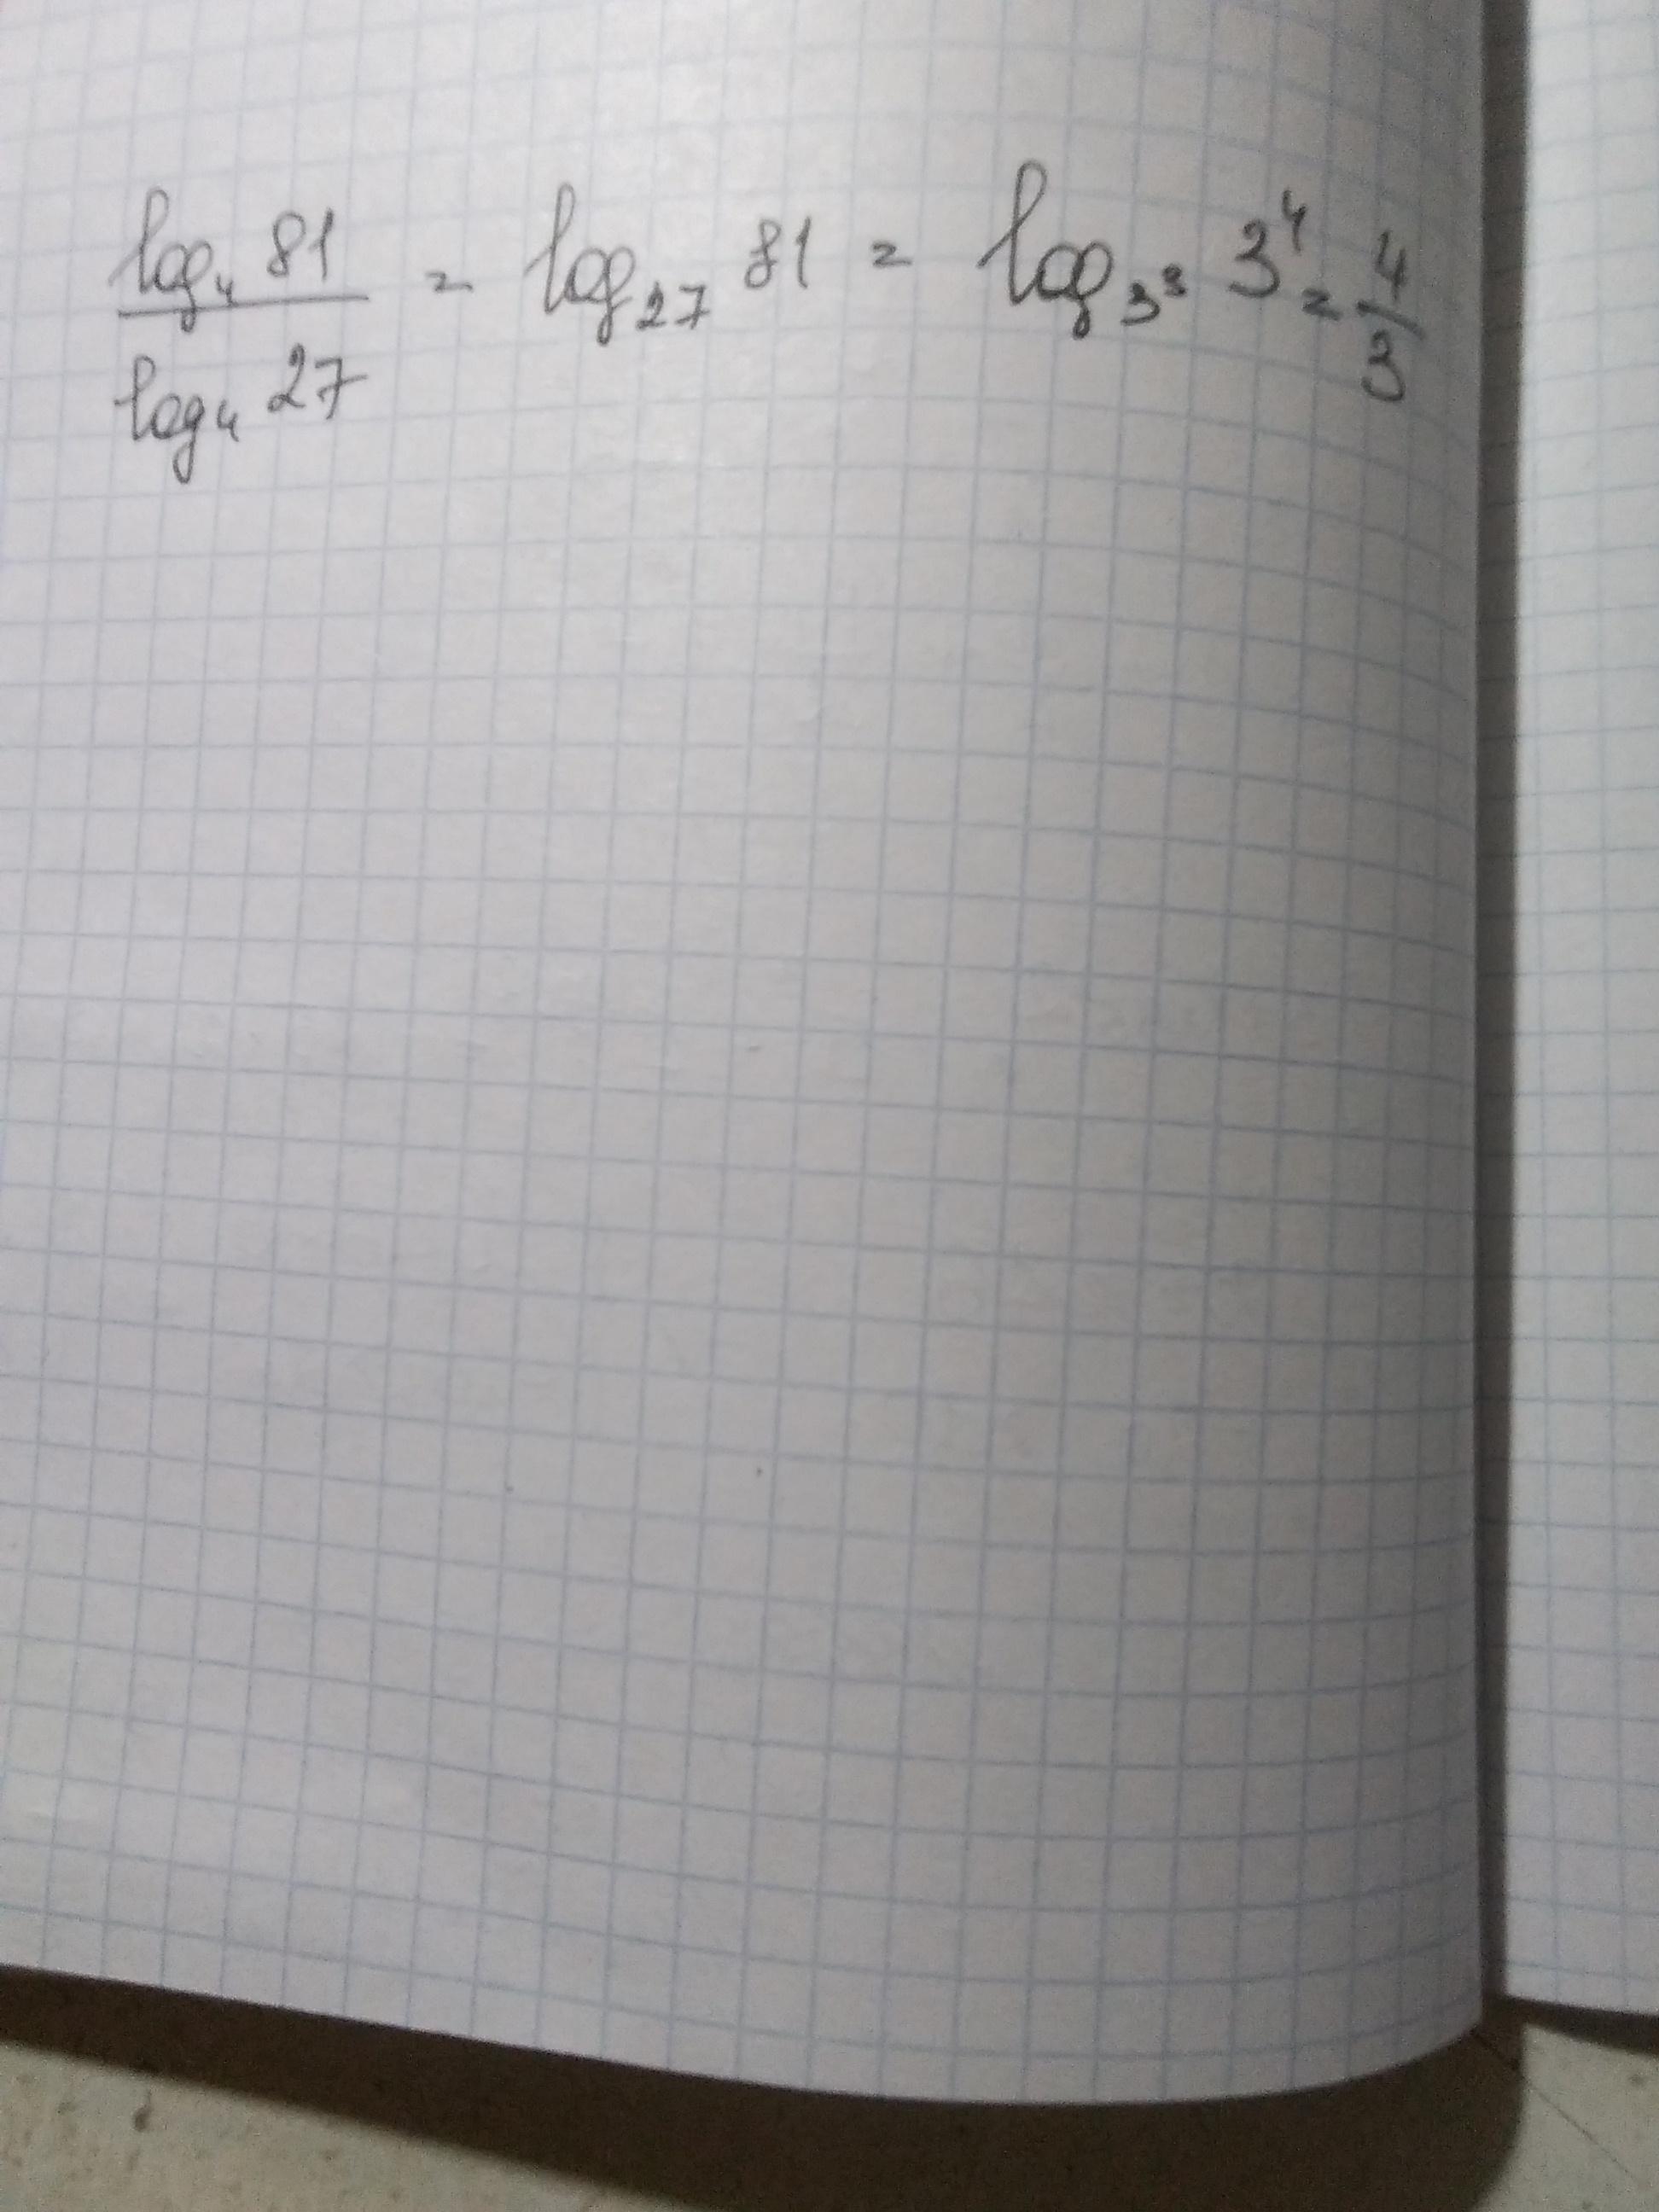 log₄ 81 / log₄ 27 = log₂₇ 81 = log_{3³} 3⁴ = 4/3